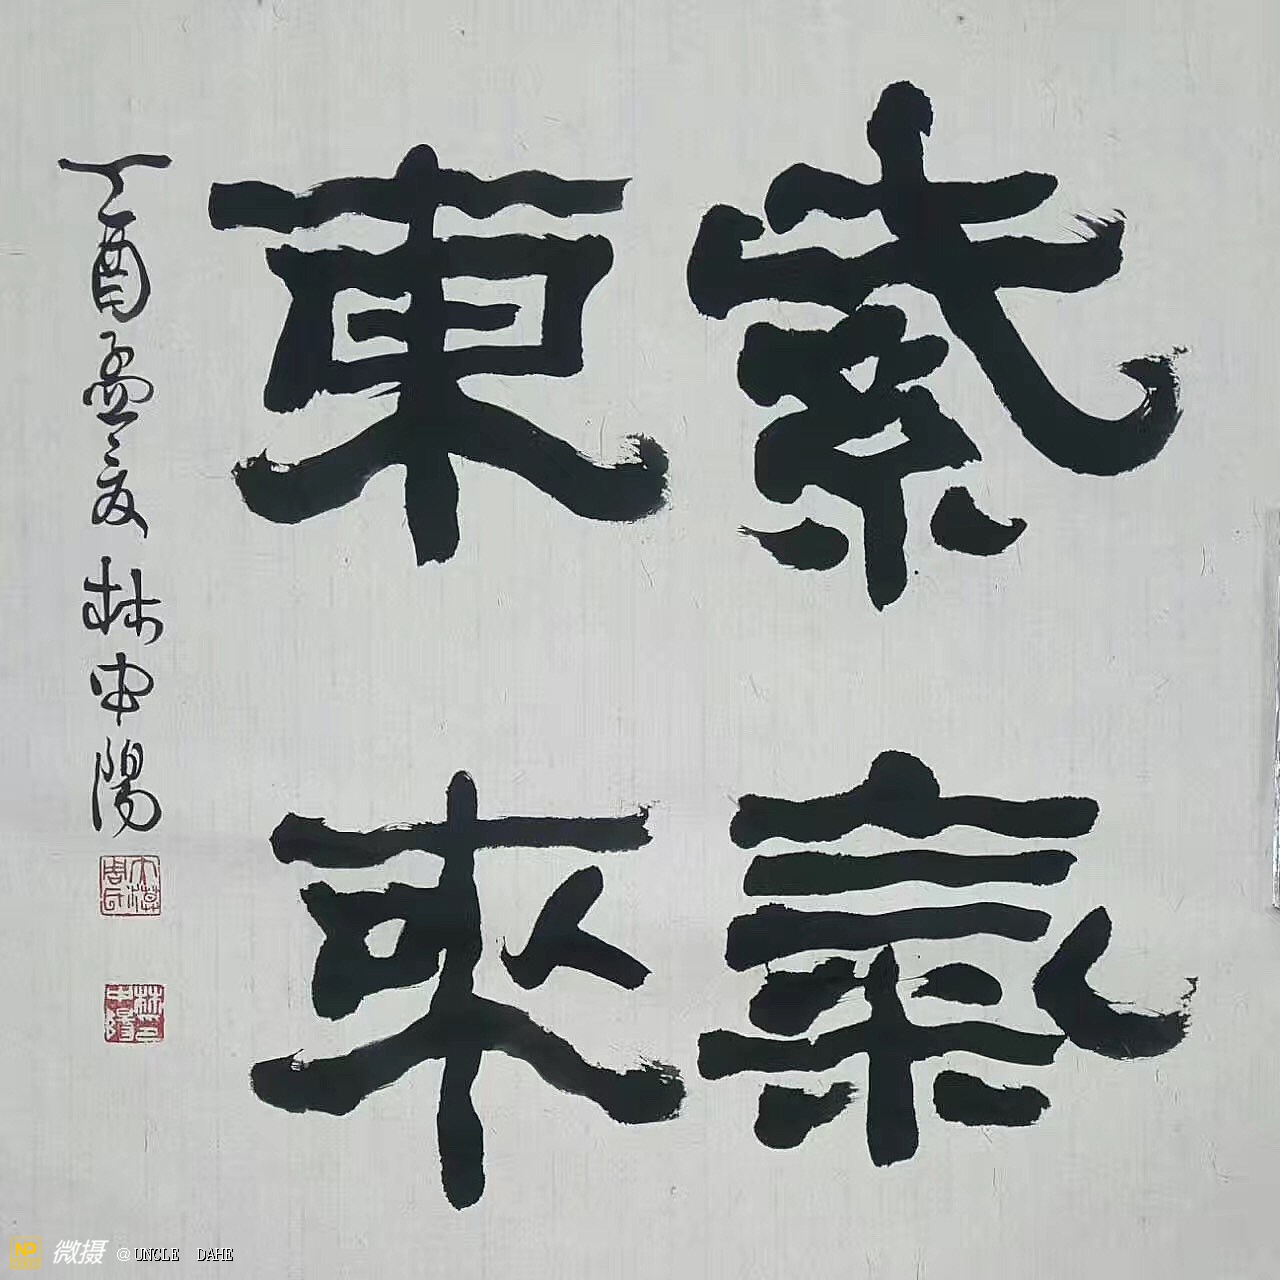 紫氣
東來
丁酉孟夏林申陽
林印申陽
微摄 @UNCLE DAHE